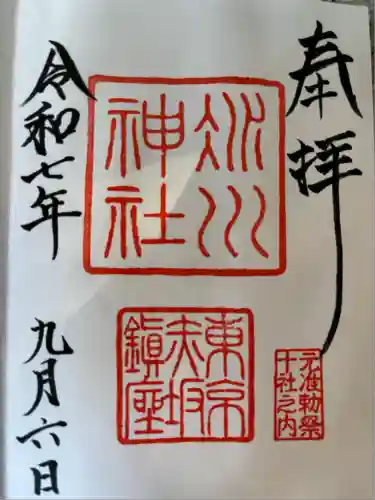 奉拝
氷川
神社
東京
赤坂
鎮座
元准勅祭
十社之内
令和七年
九月六日